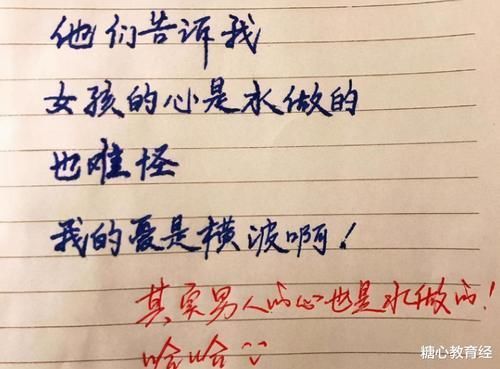 他们告诉我
女孩的心是水做的
也难怪
我的爱是横波啊!
其实男人的心也是水做的!
哈哈
糖心教育经